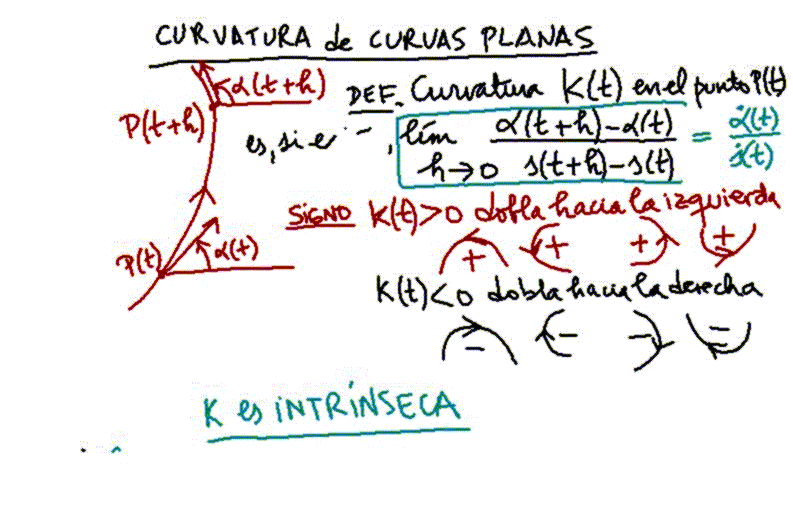 CURVATURA de CURVAS PLANAS
α(t+h)
P(t+h)
DEF. Curvatura K(t) en el punto P(t)
es, si e –, lím h→0 α(t+h)-α(t) / s(t+h)-s(t) = α̇(t) / ṡ(t)
SIGNO K(t)>0 dobla hacia la izquierda
P(t) α(t)
+ + + +
K(t)<0 dobla hacia la derecha
- - - -
K es INTRÍNSECA